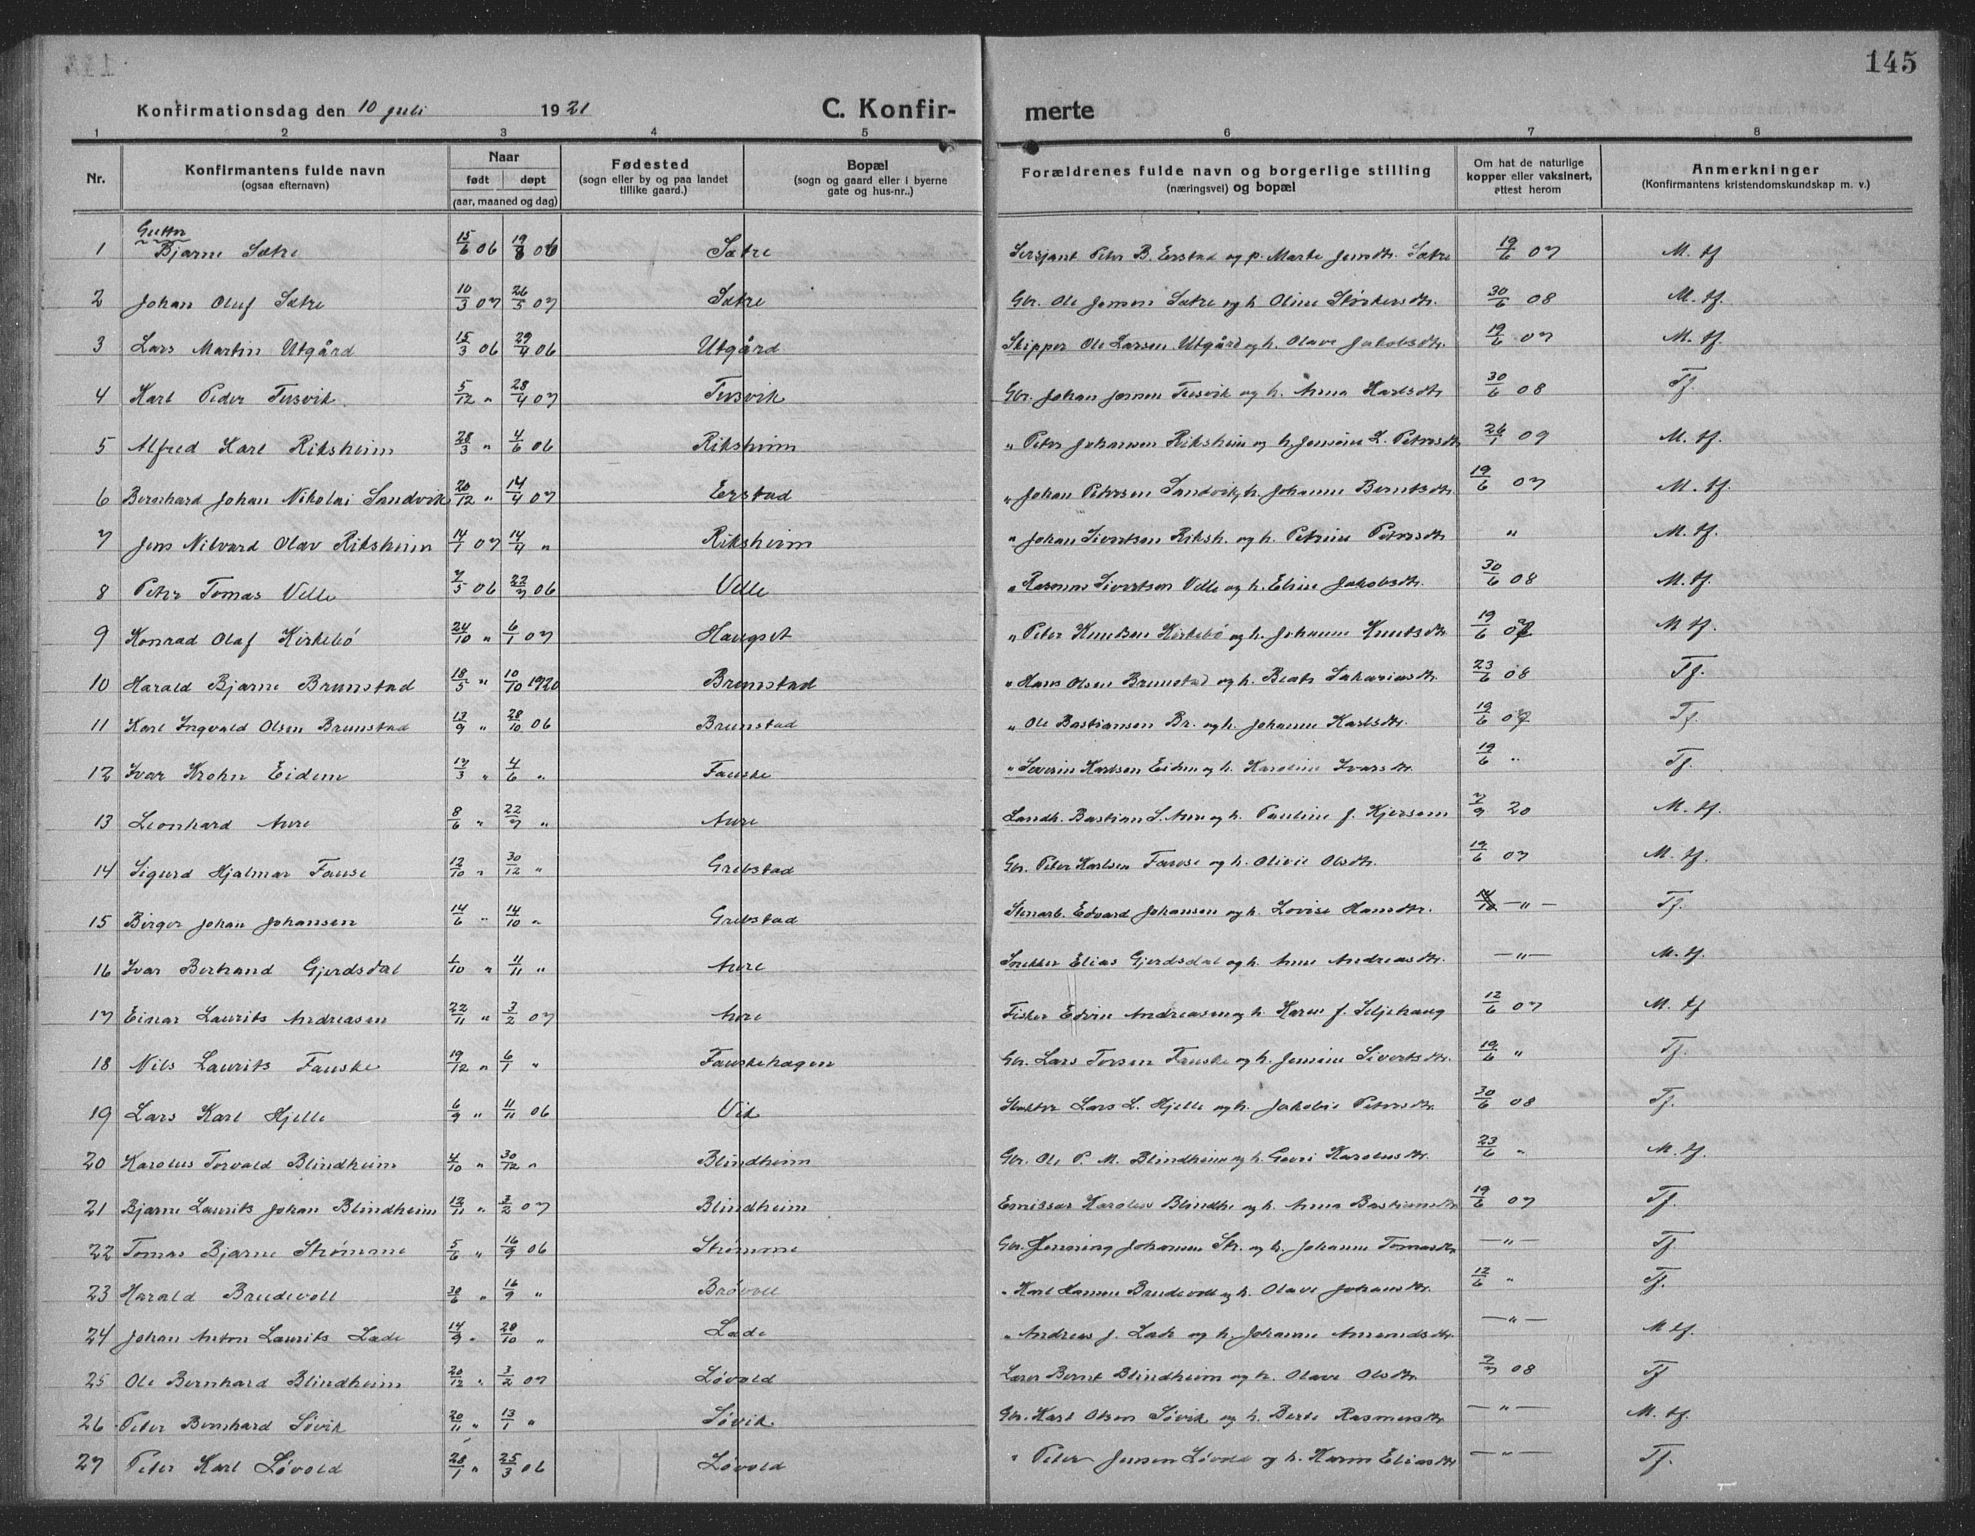 145
Konfirmationsdag den 10 juli 1921 C. Konfirmerte
1 2 3 4 5 6 7 8
Nr. Konfirmantens fulde navn (ogsaa efternavn) Naar født døpt (aar, maaned og dag) Fødested (sogn eller by og paa landet tillike gaard.) Bopæl (sogn og gaard eller i byerne gate og hus-nr..) Forældrenes fulde navn og borgerlige stilling (næringsvei) og bopæl Om hat de naturlige kopper eller vaksinert, attest herom Anmerkninger (Konfirmantens kristendomskundskap m. v.)
Gutter
1 Bjarne Sætre 15/6 06 19/8 06 Sætre Sersjant Peter B. Erstad og p. Marte Jensdtr. Sætre 19/6 07 M. tf
2 Johan Oluf Sætre 10/3 07 26/5 07 Sætre Gbr. Ole Jensen Sætre og h. Oline Størkersdtr. 30/6 08 M. tf.
3 Lars Martin Utgård 15/3 06 29/4 06 Utgård Skipper Ole Larsen Utgård og h. Olave Jakobsdtr. 19/6 07 M. tf
4 Karl Peder Tusvik 5/12 " 28/4 07 Tusvik Gbr. Johan Jensen Tusvik og h. Anna Karlsdtr 30/6 08 Tf.
5 Alfred Karl Riksheim 28/3 " 4/6 06 Riksheim " Peter Johansen Riksheim og h. Jensine L. Petersdtr 26/1 09 M. tf.
6 Bernhard Johan Nikolai Sandvik 20/12 " 14/4 07 Erstad " Johan Petersen Sandvik, h. Johanne Berntsdtr 19/6 07 M. tf.
7 Jens Nilvard Olav Riksheim 14/1 07 14/4 " Riksheim " Johan Sivertsen Riksh. og h. Petrine Petersdtr " M. tf.
8 Peter Tomas Velle 7/5 06 22/7 06 Velle " Rasmus Sivertsen Velle og h. Eline Jakobsdtr. 30/6 08 M. tf.
9 Konrad Olaf Kirkebø 24/10 " 6/1 07 Haugset " Peter Knutsen Kirkebø og h. Johanne Knutsdtr 19/6 07 M tf.
10 Harald Bjarne Brunstad 18/5 " 10/10 1920 Brunstad " Hans Olsen Brunstad og h. Beate Sakariasdtr. 23/6 08 Tf.
11 Karl Ingvald Olsen Brunstad 13/9 " 28/10 06 Brunstad " Ole Bastiansen Br. og h. Johanne Karlsdtr. 19/6 07 Tf.
12 Ivar Krohn Eidem 17/3 " 4/6 " Fauske " Severin Karlsen Eidem og h. Karoline Ivarsdtr. 19/6 " Tf.
13 Leonhard Aure 8/6 " 22/7 " Aure Landh. Bastian S. Aure og h. Pauline f. Hjersem 7/9 20 M. tf.
14 Sigurd Hjalmar Fause 12/10 " 30/12 " Grebstad Gbr. Peter Karlsen Fause og h. Olivie Olsdtr. 19/6 07 M. tf.
15 Birger Johan Johansen 14/6 " 14/10 " Grebstad Stenarb. Edvard Johansen og h. Lovise Hansdtr. — " — Tf.
16 Ivar Bertrand Gjerdsdal 1/10 " 11/11 " Aure Snekker Elias Gjerdsdal og h. Anne Andreasdtr. — " — M. tf.
17 Einar Laurits Andreasen 22/11 " 3/2 07 Aure Fisker Edvin Andreasen og h. Karen f. Seljehaug 12/6 07 M. tf
18 Nils Laurits Fauske 19/12 " 6/1 " Fauskehagen Gbr. Lars Torsen Fauske og h. Jensine Sivertsdtr. 19/6 " Tf.
19 Lars Karl Hjelle 6/9 " 11/11 06 Vik Lars L. Hjelle og h. Jakobie Petersdtr. 30/6 08 Tf.
20 Karolus Torvald Blindheim 4/10 " 30/12 " Blindheim Gbr. Ole P. M. Blindheim og h. Guri Karolusdtr. 23/6 " M. tf.
21 Bjarne Laurits Johan Blindheim 12/11 " 3/2 07 Blindheim Emissær Karolus Blindhe og h. Anna Bastiansdtr 19/6 07 Tf.
22 Tomas Bjarne Strømme 5/6 " 16/9 06 Strømme Gbr. Henning Johansen Str. og h. Johanne Tomasdtr — " — Tf.
23 Harald Brudevoll 30/6 " 16/9 " Brøvoll " Karl Larsen Brudevoll og h. Olave Johansdtr. 12/6 " Tf.
24 Johan Anton Laurits Lade 14/9 " 28/10 " Lade " Andreas J. Lade og h. Johanne Amundsdtr. — " — M. tf.
25 Ole Bernhard Blindheim 20/12 " 3/2 07 Løvold Lærer Bernt Blindheim og h. Olave Olsdtr 7/7 08 Tf
26 Peter Bernhard Søvik 20/11 " 13/1 " Søvik Gbr. Karl Olsen Søvik og h. Berte Rasmusdtr — " — M. tf.
27 Peter Karl Løvold 28/1 " 25/3 06 Løvold " Peter Jensen Løvold og h. Karen Eliasdtr — " — Tf.